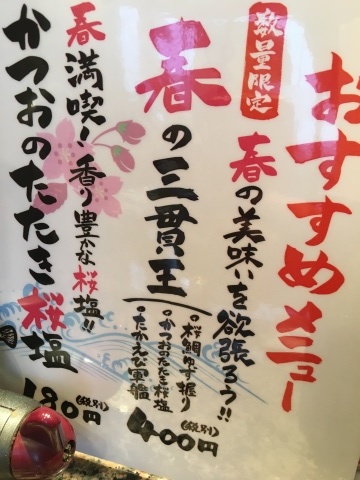 おすすめメニュー
数量限定
春の美味いを欲張ろう!!
春の三貫王
•桜鯛ゆず握り
•かつおのたたき桜塩
•たかえび軍艦
400円(税別)
春満喫!香り豊かな桜塩!!
かつおのたたき桜塩
180円(税別)